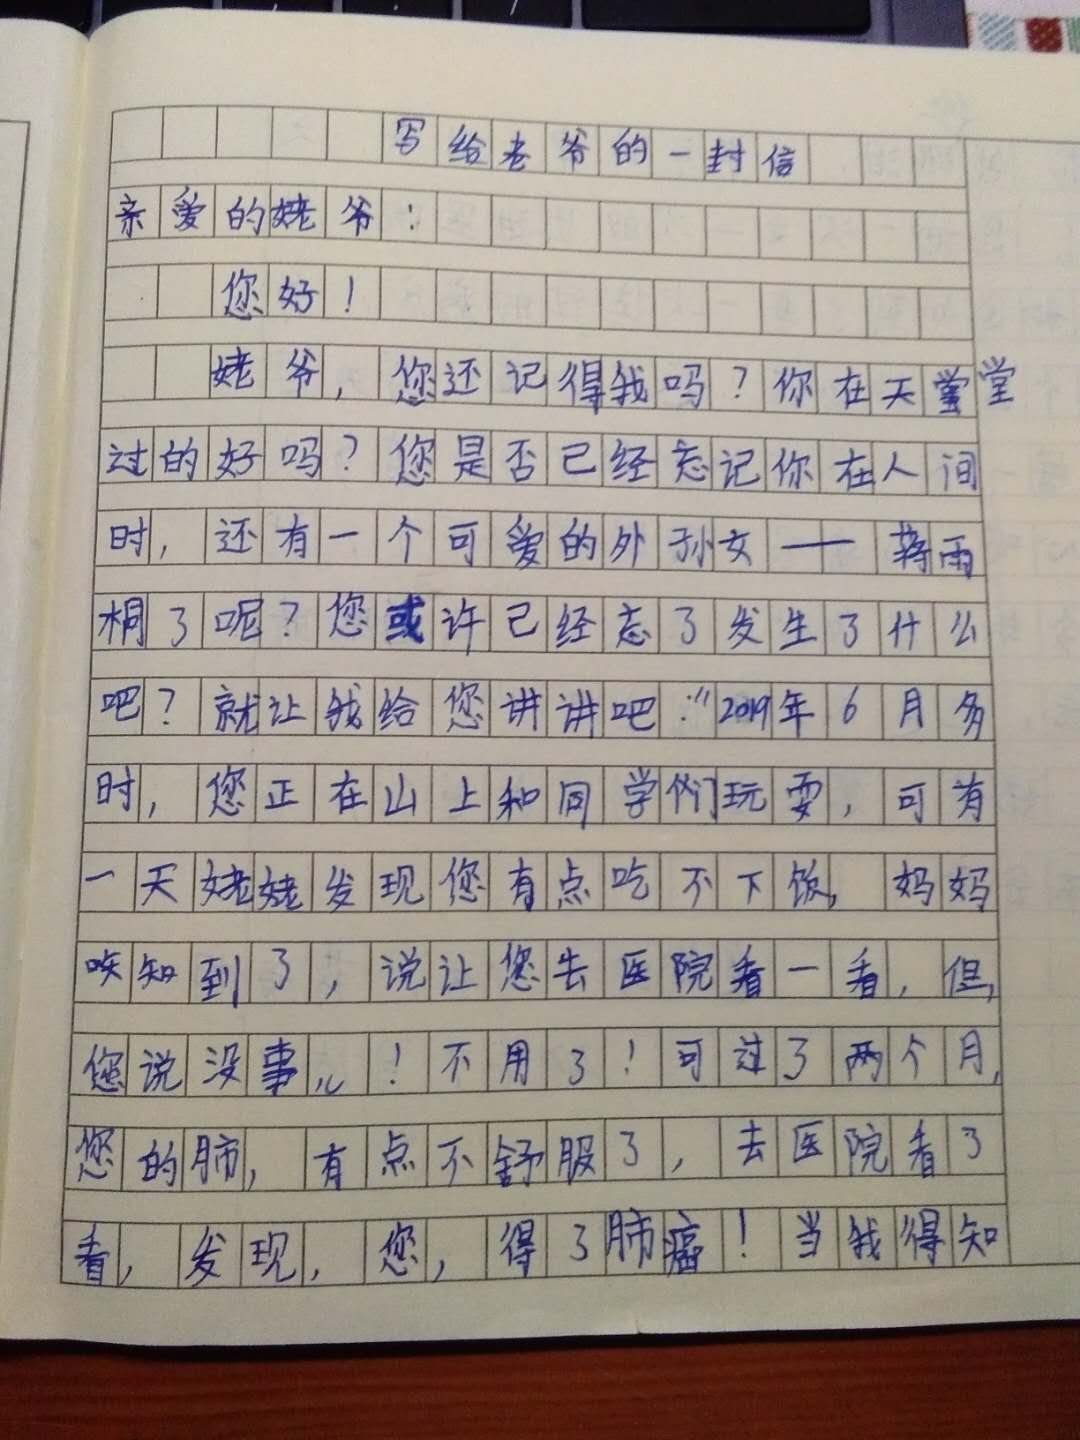 写给老爷的一封信
亲爱的姥爷：
您好！
姥爷，您还记得我吗？你在天堂
过的好吗？您是否已经忘记你在人间
时，还有一个可爱的外孙女——蒋雨
桐了呢？您或许已经忘了发生了什么
吧？就让我给您讲讲吧：“2019年6月多
时，您正在山上和同学们玩耍，可有
一天姥姥发现您有点吃不下饭，妈妈
知到了，说让您去医院看一看，但，
您说没事儿！不用了！可过了两个月，
您的肺，有点不舒服了，去医院看了
看，发现，您，得了肺癌！当我得知